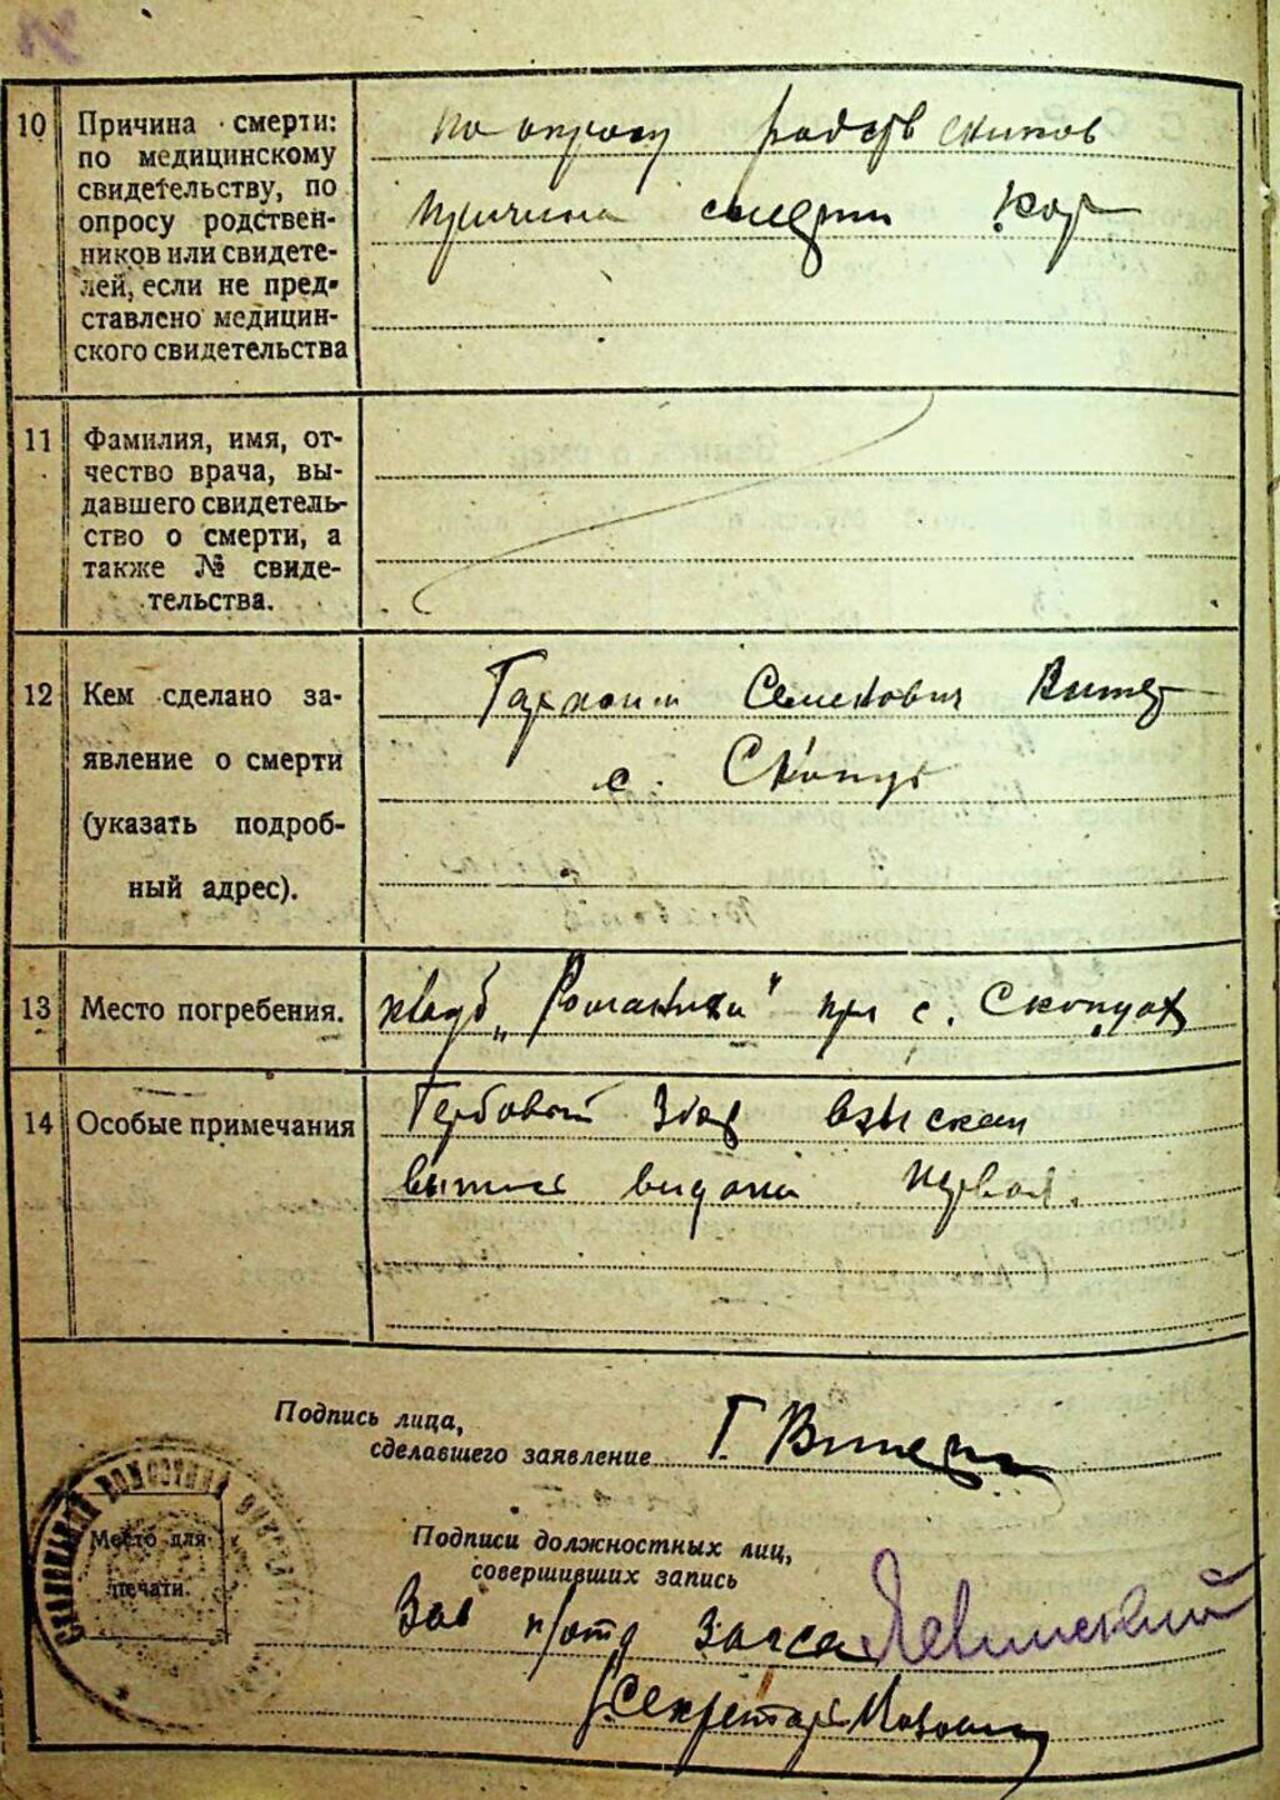 10 Причина смерти:
по медицинскому
свидетельству, по
опросу родствен-
ников или свидете-
лей, если не пред-
ставлено медицин-
ского свидетельства
по опросу родственников
причина смерти Кор
11 Фамилия, имя, от-
чество врача, вы-
давшего свидетель-
ство о смерти, а
также № свиде-
тельства.
12 Кем сделано за-
явление о смерти
(указать подроб-
ный адрес).
Семенович
с.
13 Место погребения.
кладб „Романтики" при с. Скопцах
14 Особые примечания
Гербовый збор взыскан
выпись видана первая.
Подпись лица,
сделавшего заявление
Г.
Место для
печати.
Подписи должностных лиц,
совершивших запись
Зав п/отд загса Левинский
Секретарь